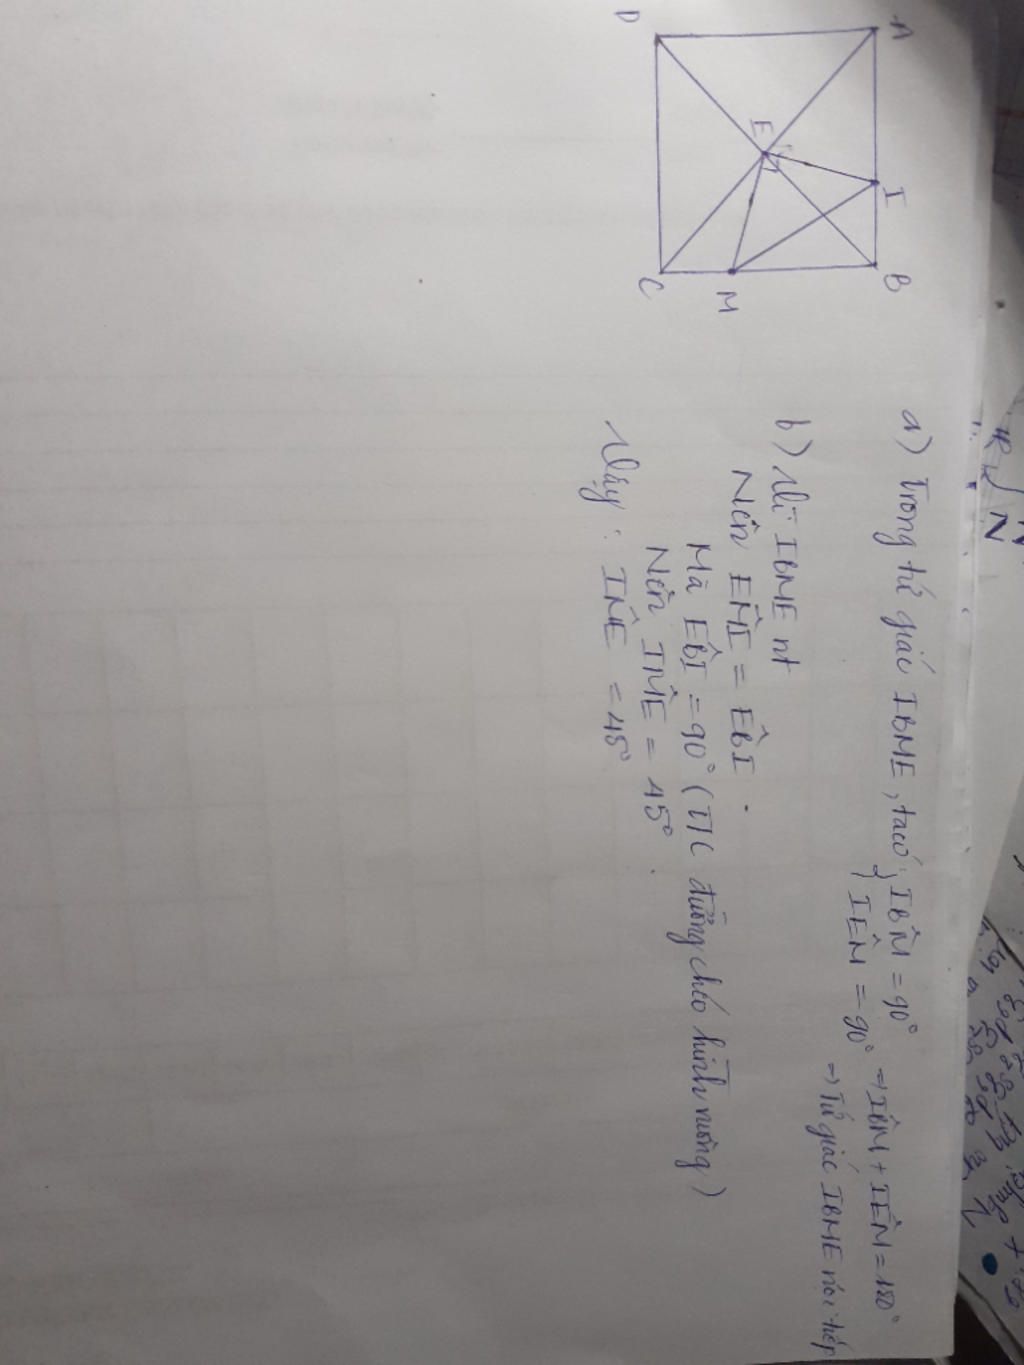 D
A
E
I
C
M
B
a) Trong tứ giác IBME, ta có: { IB̂M = 90°
IÊM = 90° => IB̂M + IÊM = 180°
=> Tứ giác IBME nội tiếp
b) Vì IBME nt
Nên EM̂I = EB̂I.
Mà EB̂I = 90° (T/C đường chéo hình vuông)
Nên IM̂E = 45°.
Vậy: IM̂E = 45°
N